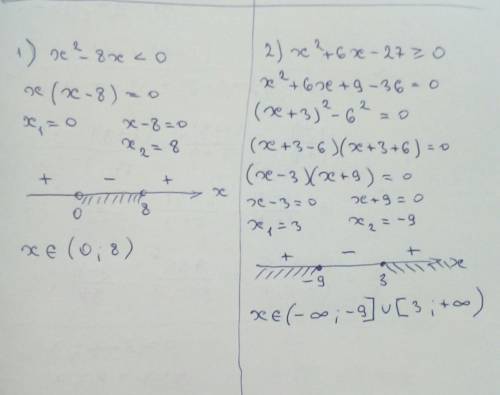 1) x² - 8x < 0
x(x-8) = 0
x₁ = 0 x-8=0
x₂ = 8
+ - + x
0 8
x ∈ (0; 8)
2) x² + 6x - 27 ≥ 0
x² + 6x + 9 - 36 = 0
(x+3)² - 6² = 0
(x+3-6)(x+3+6) = 0
(x-3)(x+9) = 0
x-3=0 x+9=0
x₁ = 3 x₂ = -9
+ - + x
-9 3
x ∈ (-∞; -9] ∪ [3; +∞)